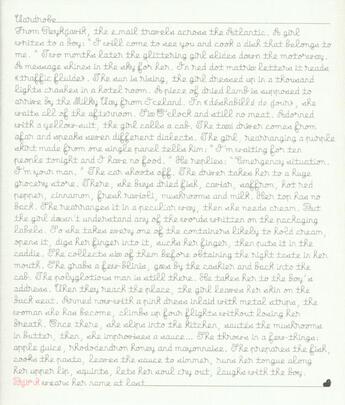 Wardrobe
From Reykjavik, the e.mail travels across the Atlantic. A girl
writes to a boy: "I will come to see you and cook a dish that belongs to
me." Two months later the glittering girl slides down the motorway.
A message shines in the sky for her. In red dot matrix letters it reads
«traffic fluide». The sun is rising, the girl dressed up in a thousand
lights crashes in a hotel room. A piece of dried lamb is supposed to
arrive by the Milky Way from Iceland. In «déshabillé de jour», she
waits all of the afternoon. O'Clock and still no meat. Adorned
with a yellow suit, the girl calls a cab. The taxi driver comes from
afar and speaks seven different dialects. The girl, rearranging a purple
skirt made from one single panel tells him: "I'm waiting for ten
people tonight and I have no food." He replies: "Emergency situation.
I'm your man." The car shoots off. The driver takes her to a huge
grocery store. There, she buys dried fish, caviar, saffron, hot red
pepper, cinnamon, fresh ravioli, mushrooms and milk. Her top has no
back. She rearranges it in a peculiar way, then she needs cream. But
the girl doesn't understand any of the words written on the packaging
labels. So she takes every one of the containers likely to hold cream,
opens it, digs her finger into it, sucks her finger, then puts it in the
caddie. She collects six of them before obtaining the right taste in her
mouth. She grabs a few blinis, goes by the cashier and back into the
cab. The polyglotious man is still there. He takes her to the boy's
address. When they reach the place, the girl leaves her skin on the
back seat. Armed now with a pink dress inlaid with metal strips, the
woman she has become, climbs up four flights without losing her
breath. Once there, she slips into the kitchen, sautés the mushrooms
in butter, then, she improvises a sauce... She throws in a few things:
apple juice, rhododendron honey and mayonnaise. She prepares the fish,
cooks the pasta, leaves the sauce to simmer, runs her tongue along
her upper lip, squints, lets her soul cry out, laughs with the boy.
Björk wears her name at last